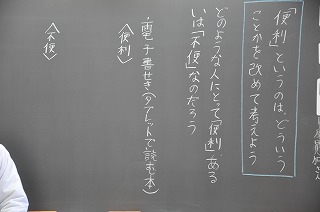 「便利」というのは、どういう
ことかを改めて考えよう
どのような人にとって「便利」、ある
いは「不便」なのだろう
・電子書せき(タブレットで読む本)
〈便利〉
〈不便〉